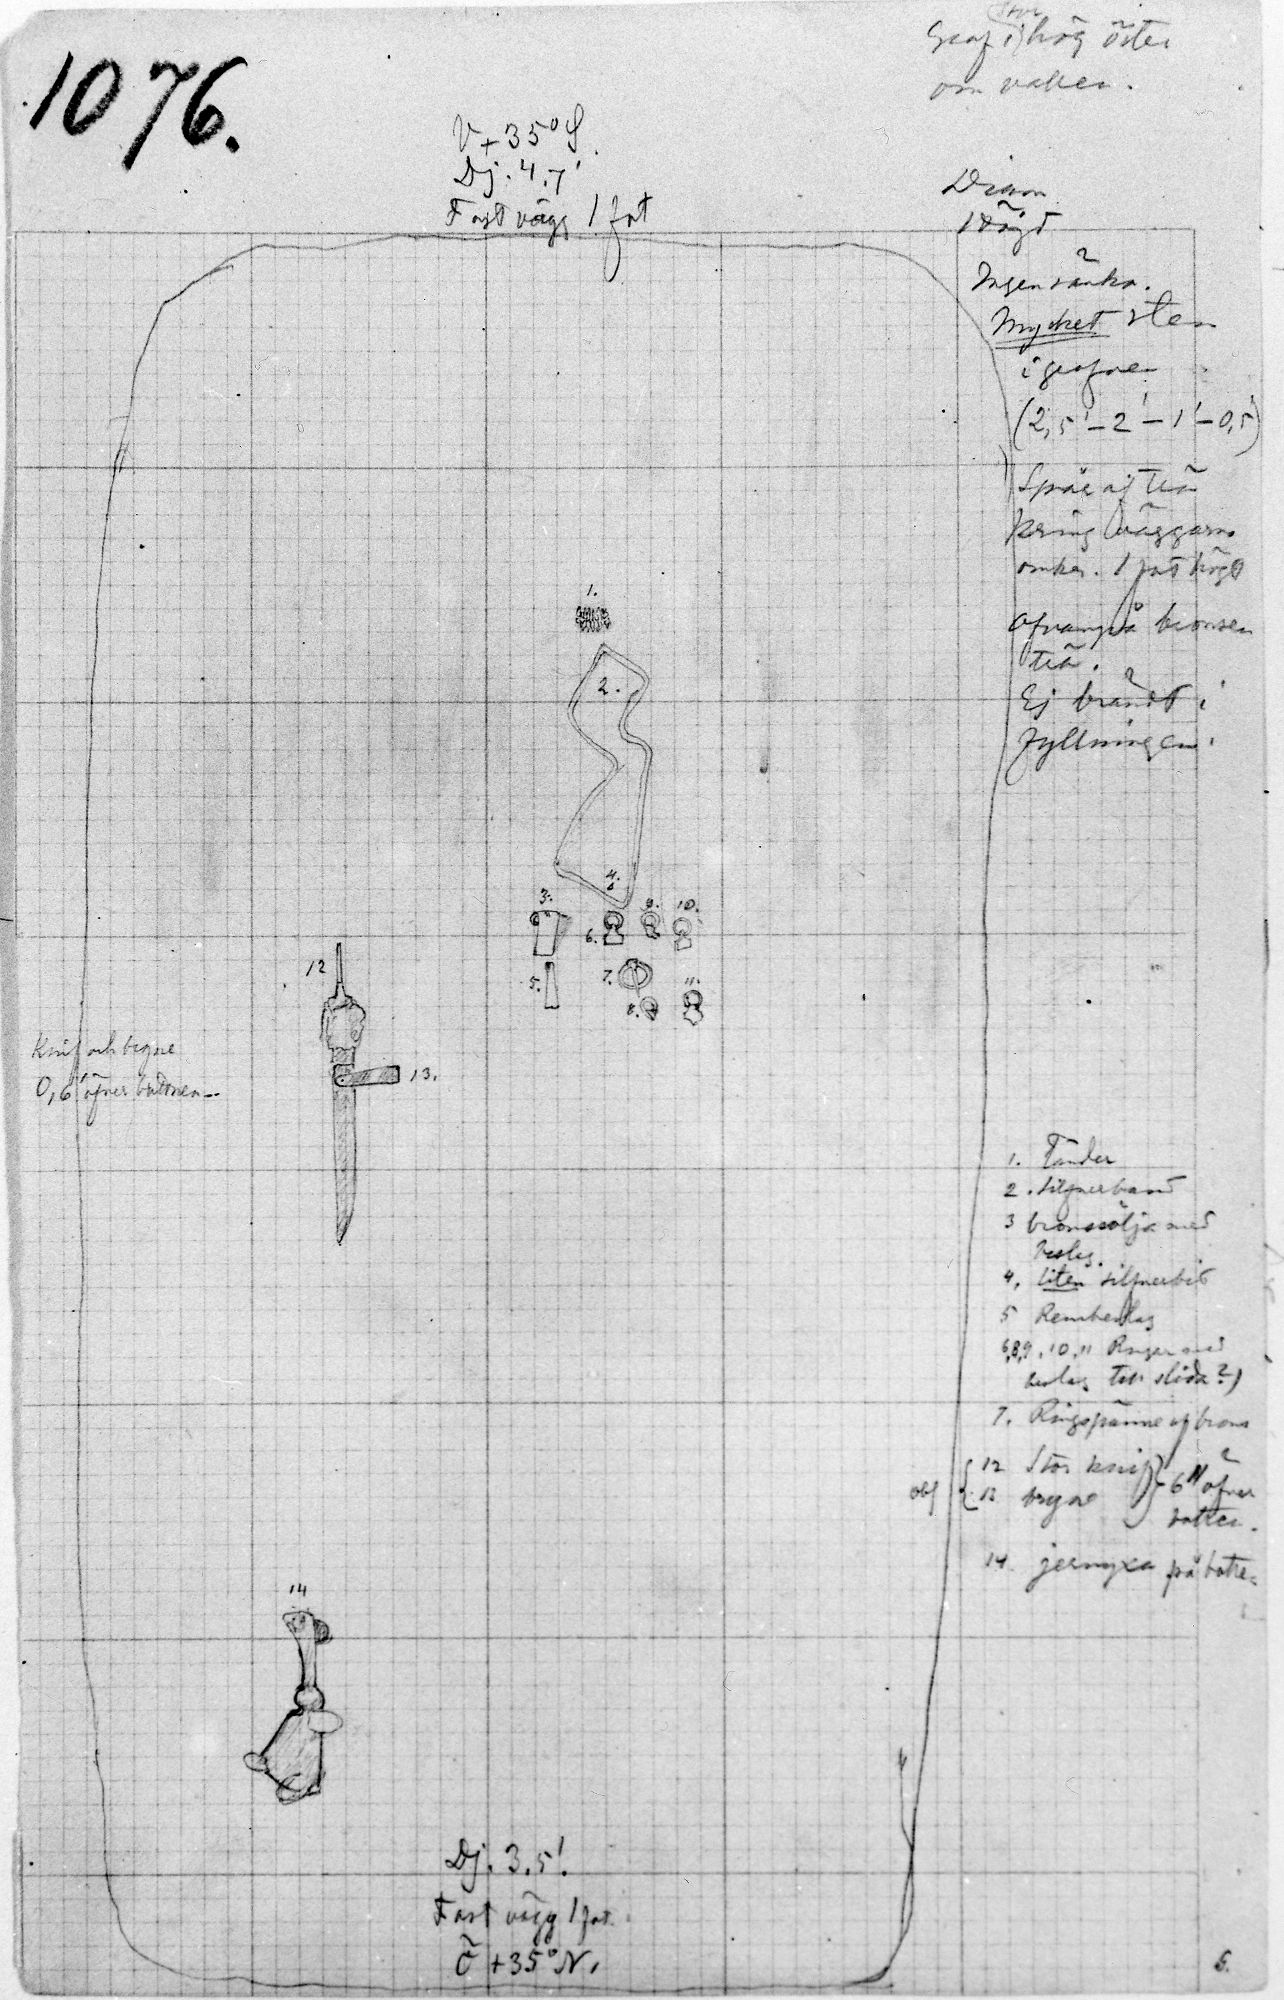 1076.
Graf i stor hög öster
om vallen.
V + 35° S.
Dj. 4.7'
Fast vägg 1 fot
Diam
1 Höjd
Ingen sänka.
Mycket sten
i grafven
(2,5' – 2' – 1' – 0,5')
Spår af trä
kring väggarna
omkr. 1 fot högt
Ofvanpå bronsen
trä.
Ej brändt i
fyllningen.
1.
2.
4.
3.
9.
10.
6.
5.
7.
11.
8.
12
13.
Knif och bryne
0,6' öfver bottnen
1. Tänder
2. Silfverband
3 bronssölja med
beslag.
4. liten silfverbit
5 Rembeslag
6,8,9, 10, 11 Ringar med
beslag till slida?)
7. Ringspänne af brons
obs { 12 Stor knif } 6" öfver
13 bryne botten.
14. jernyxa på botten
14
Dj. 3.5'.
Fast vägg 1 fot.
Ö + 35° N.
S.